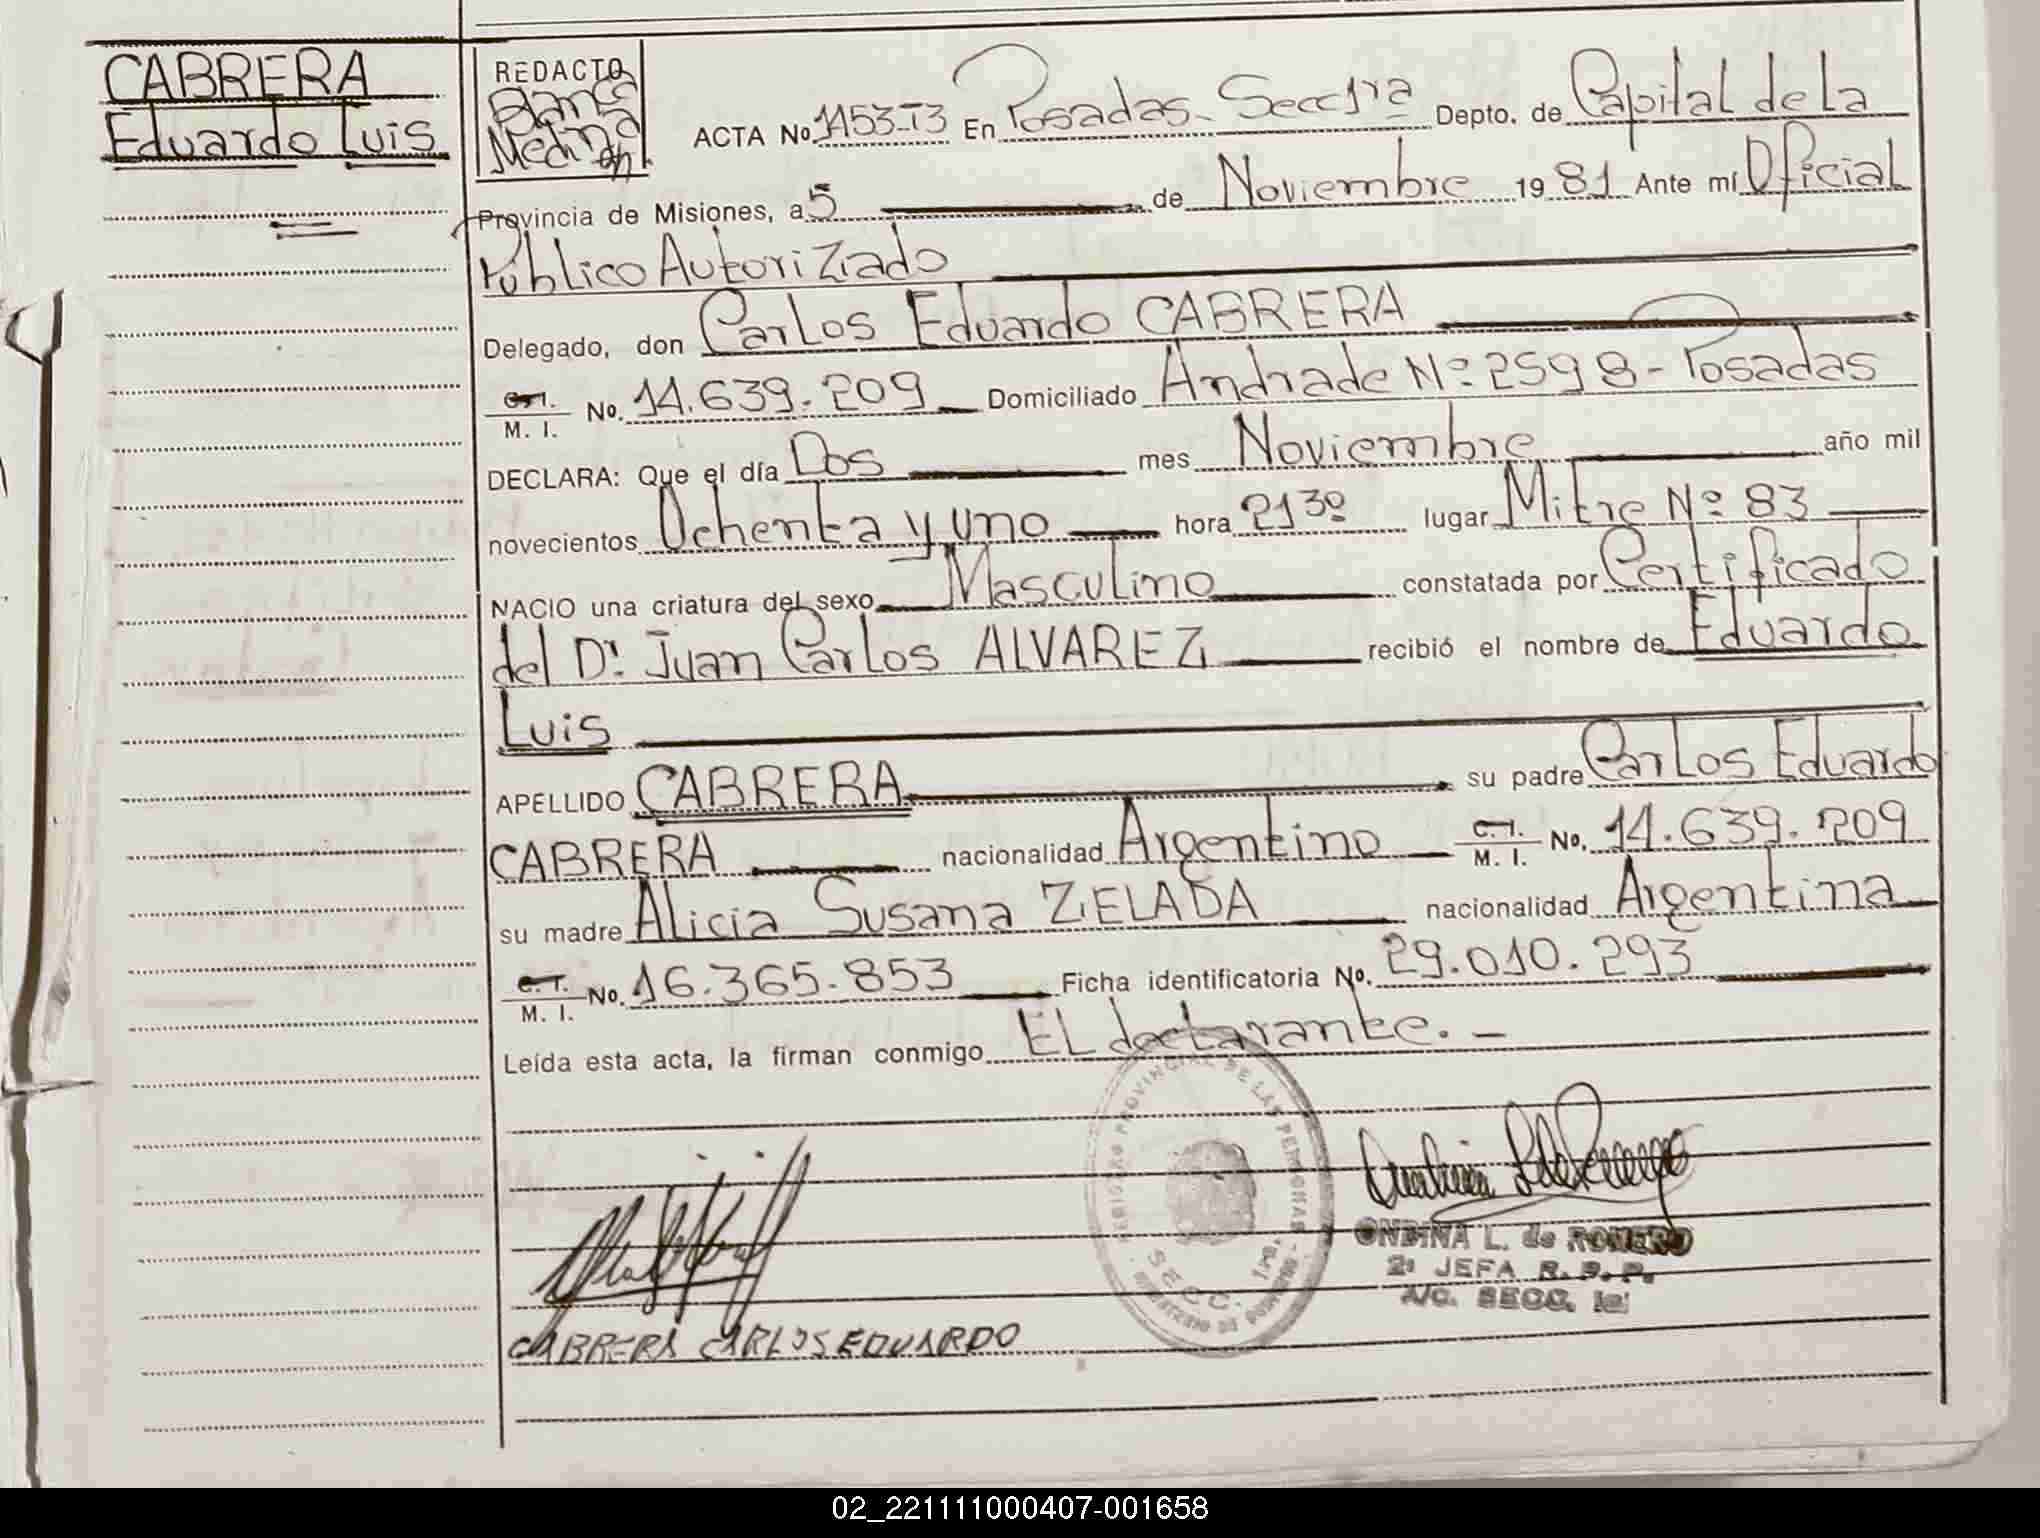 CABRERA
Eduardo Luis
REDACTO
Blanca
Medina
ACTA No. 1153-T3 En Posadas - Secc 1ra Depto. de Capital de La
Provincia de Misiones, a 5 de Noviembre 1981 Ante mí Oficial
Público Autorizado
Delegado, don Carlos Eduardo CABRERA
C. I.
M. I. No. 14.639.209 Domiciliado Andrade Nº 2598 - Posadas
DECLARA: Que el día Dos mes Noviembre año mil
novecientos Ochenta y uno hora 21 30 lugar Mitre Nº 83
NACIO una criatura del sexo Masculino constatada por Certificado
del Dr. Juan Carlos ALVAREZ recibió el nombre de Eduardo
Luis
APELLIDO CABRERA su padre Carlos Eduardo
CABRERA nacionalidad Argentino C. I. M. I. No. 14.639.209
su madre Alicia Susana ZELADA nacionalidad Argentina
C. I. M. I. No. 16.365.853 Ficha identificatoria No. 29.010.293
Leída esta acta, la firman conmigo EL declarante. -
REGISTRO PROVINCIAL DE LAS PERSONAS
SECC. 1ra.
ONDINA L. de ROMERO
2a JEFA R. P. P.
A/C. SECC. 1a
CABRERA CARLOS EDUARDO
02_221111000407-001658